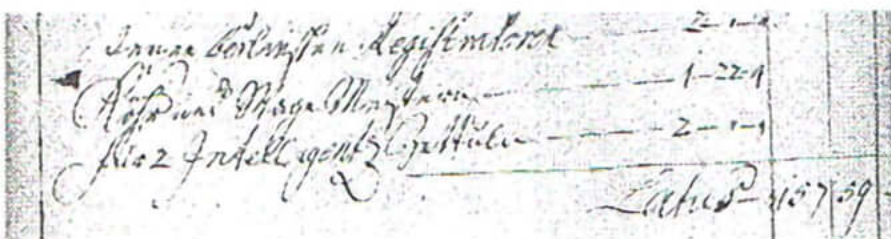 Denen Berlinschen Registratoren — 2 — „ — „
und Wage Meistern — 1 — 22 — „
für 2 Intelligentz Zettuln — 2 — „ — „
Latus — 157 59